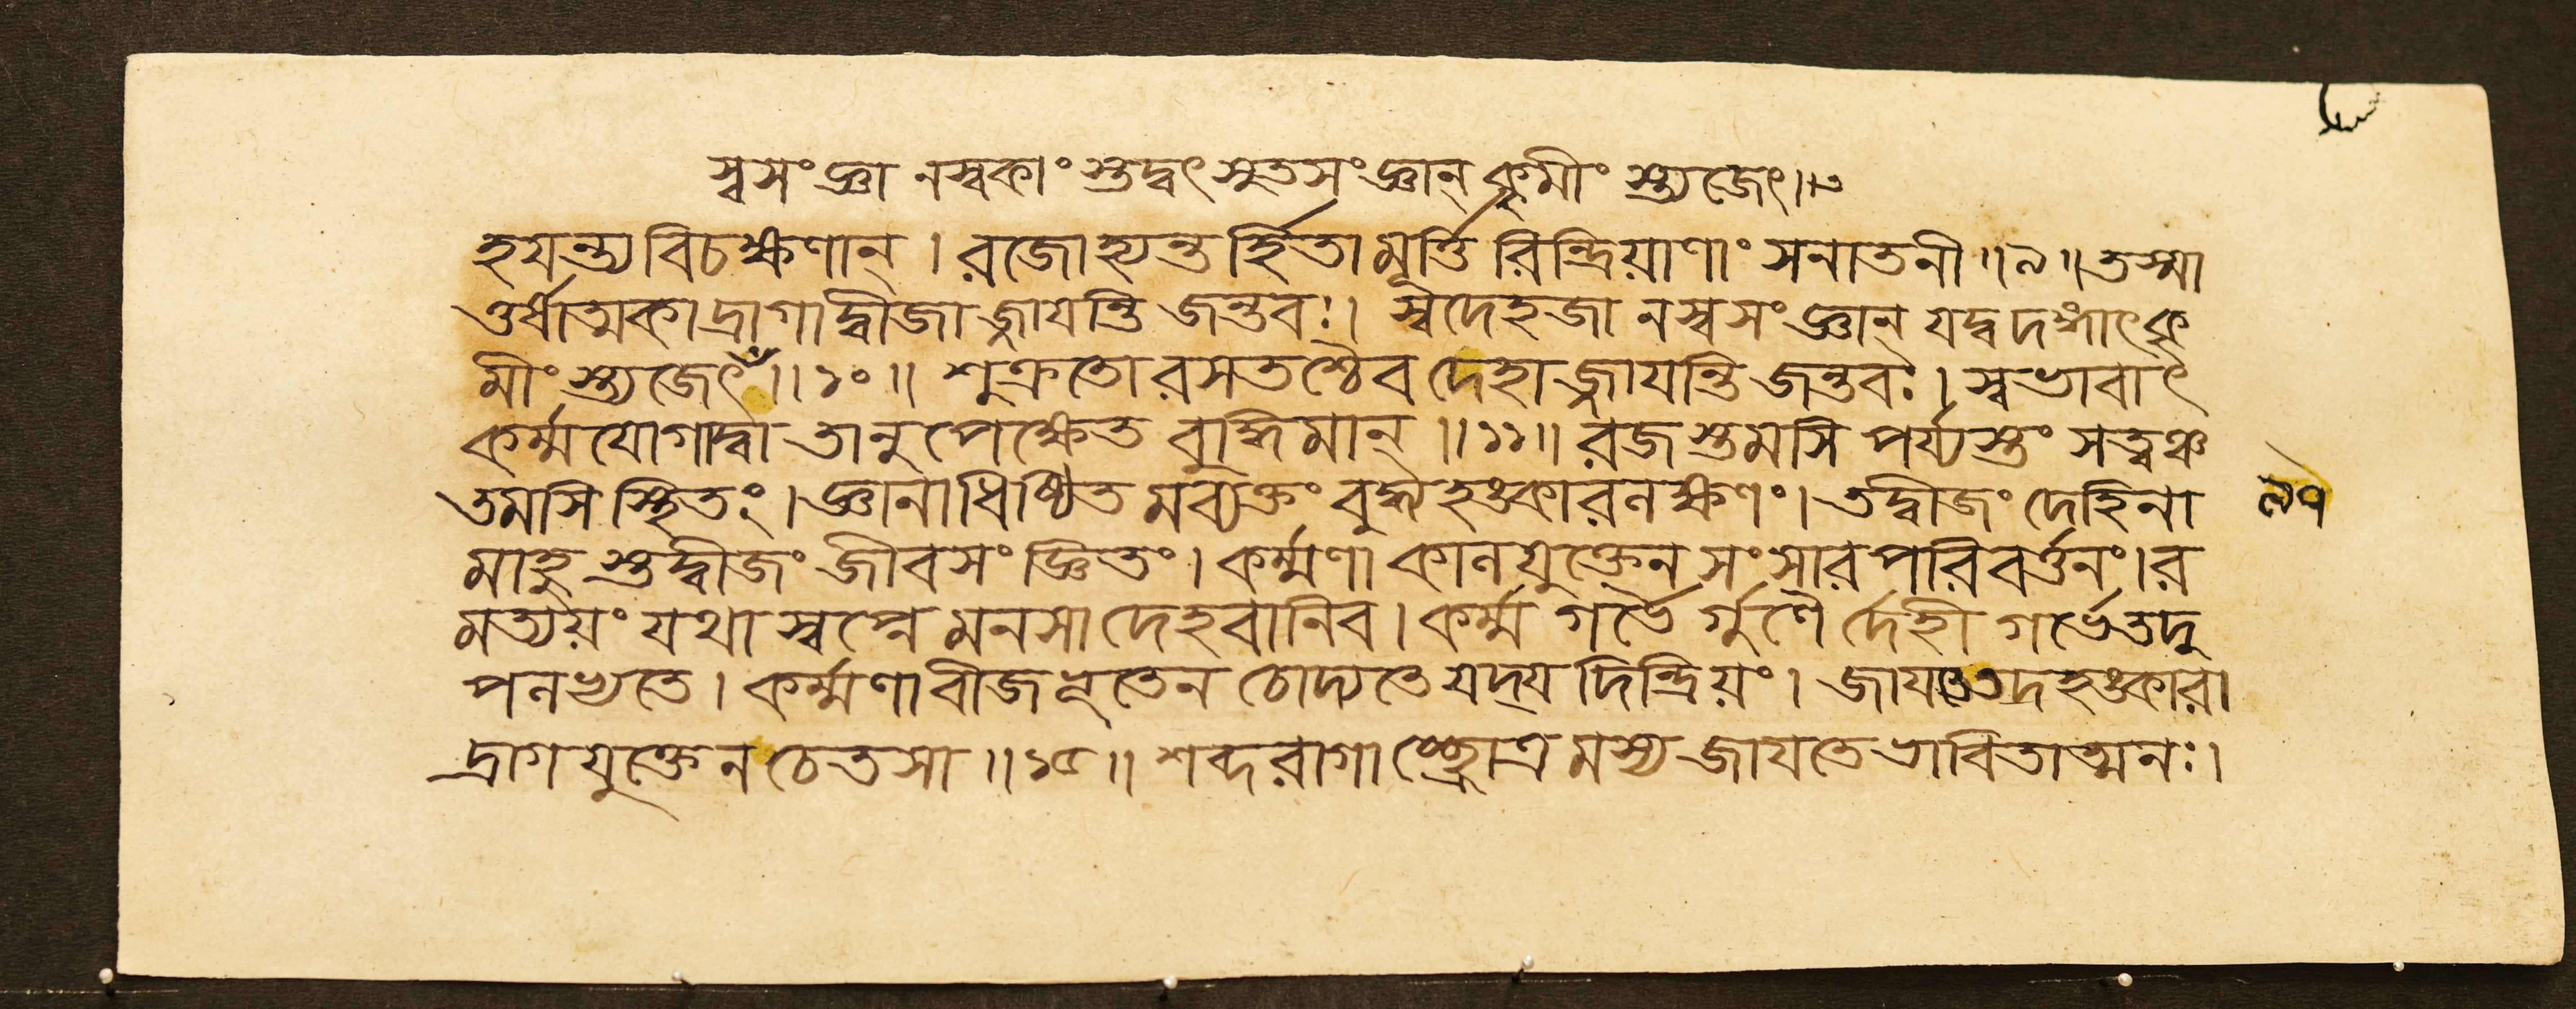 স্বসংজ্ঞানস্বকাংস্তদ্বৎ সুতসংজ্ঞান্ কৃমীংস্ত্যজেৎ।।৩
হযন্ত্যবিচক্ষণান্ । রজোহ্যন্তর্হিতামূর্ত্তিরিন্দ্রিয়াণাং সনাতনী ॥৯॥ তস্মা
ত্তর্ষাত্মকাদ্রাগাদ্বীজাজ্জাযন্তি জন্তবঃ। স্বদেহজানস্বসংজ্ঞান্ যদ্বদঙ্গাৎকৃ
মীংস্ত্যজেৎ ॥১০॥ শুক্রতোরসতশ্চৈব দেহাজ্জাযন্তি জন্তবঃ। স্বভাবাৎ
কর্ম্মযোগাদ্বা তানুপেক্ষেত বুদ্ধিমান্ ॥১১॥ রজস্তমসি পর্য্যস্তং সত্ত্বঞ্চ
তমসি স্থিতং। জ্ঞানাধিষ্ঠিতমব্যক্তং বুদ্ধ্যহঙ্কারলক্ষণং। তদ্বীজং দেহিনা
৯৭
মাহুস্তদ্বীজং জীবসংজ্ঞিতং। কর্ম্মণা কালযুক্তেন সংসারপরিবর্ত্তনং। র
মত্যয়ং যথা স্বপ্নে মনসা দেহবানিব। কর্ম্মগর্ভৈর্গুণৈর্দেহী গর্ভেতদু
পলভ্যতে। কর্ম্মণাবীজভূতেন চোদ্যতে যদ্যদিন্দ্রিয়ং। জাযতেতদহঙ্কারা
দ্রাগযুক্তেন চেতসা ॥১৫॥ শব্দরাগাচ্ছ্রোত্রমস্য জাযতে ভাবিতাত্মনঃ।